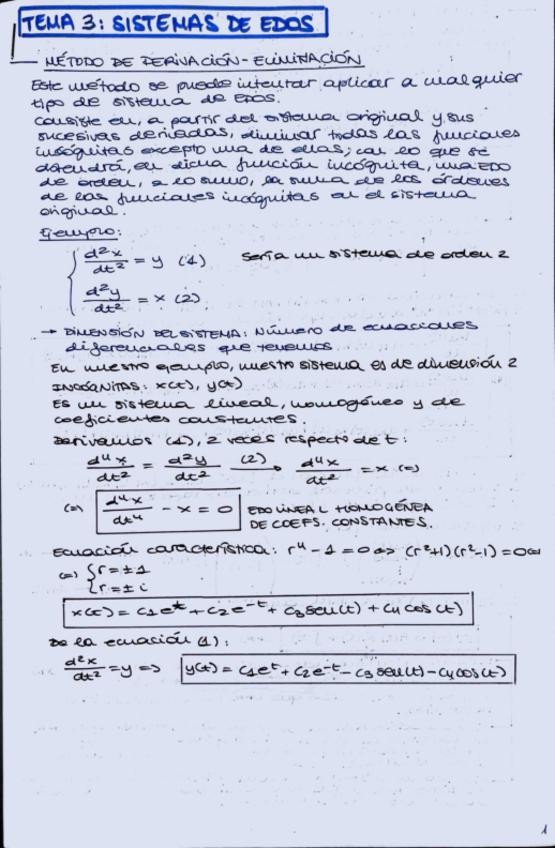 TEMA 3: SISTEMAS DE EDOS
MÉTODO DE DERIVACIÓN-ELIMINACIÓN
Este método se puede intentar aplicar a cualquier
tipo de sistema de EDOS.
Consiste en, a partir del sistema original y sus
sucesivas derivadas, eliminar todas las funciones
incógnitas excepto una de ellas, con lo que se
obtendrá, en dicha función incógnita, una EDO
de orden, a lo sumo, la suma de los órdenes
de las funciones incógnitas en el sistema
original.
Ejemplo:
d²x/dt² = y (1) Sería un sistema de orden 2
d²y/dt² = x (2)
→ DIMENSIÓN DEL SISTEMA: Número de ecuaciones
diferenciales que tenemos.
En nuestro ejemplo, nuestro sistema es de dimensión 2
INCÓGNITAS: x(t), y(t)
Es un sistema lineal, homogéneo y de
coeficientes constantes.
Derivamos (1), 2 veces respecto de t:
d⁴x/dt² = d²y/dt² (2)→ d⁴x/dt² = x (=)
(=) d⁴x/dt⁴ - x = 0 EDO LINEAL HOMOGÉNEA
DE COEFS. CONSTANTES.
Ecuación característica: r⁴ - 1 = 0 ⇔ (r²+1)(r²-1) = 0 ⇔
(=) { r = ± 1
r = ± i
x(t) = C1e^t + C2e^-t + C3 sen(t) + C4 cos(t)
De la ecuación (1):
d²x/dt² = y => y(t) = C1e^t + C2e^-t - C3 sen(t) - C4 cos(t)
1